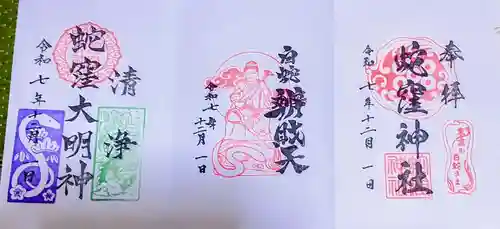 奉拝
蛇窪神社
令和七年十二月一日
白蛇辨財天
令和七年
十二月一日
清浄
蛇窪大明神
令和七年十二月一日